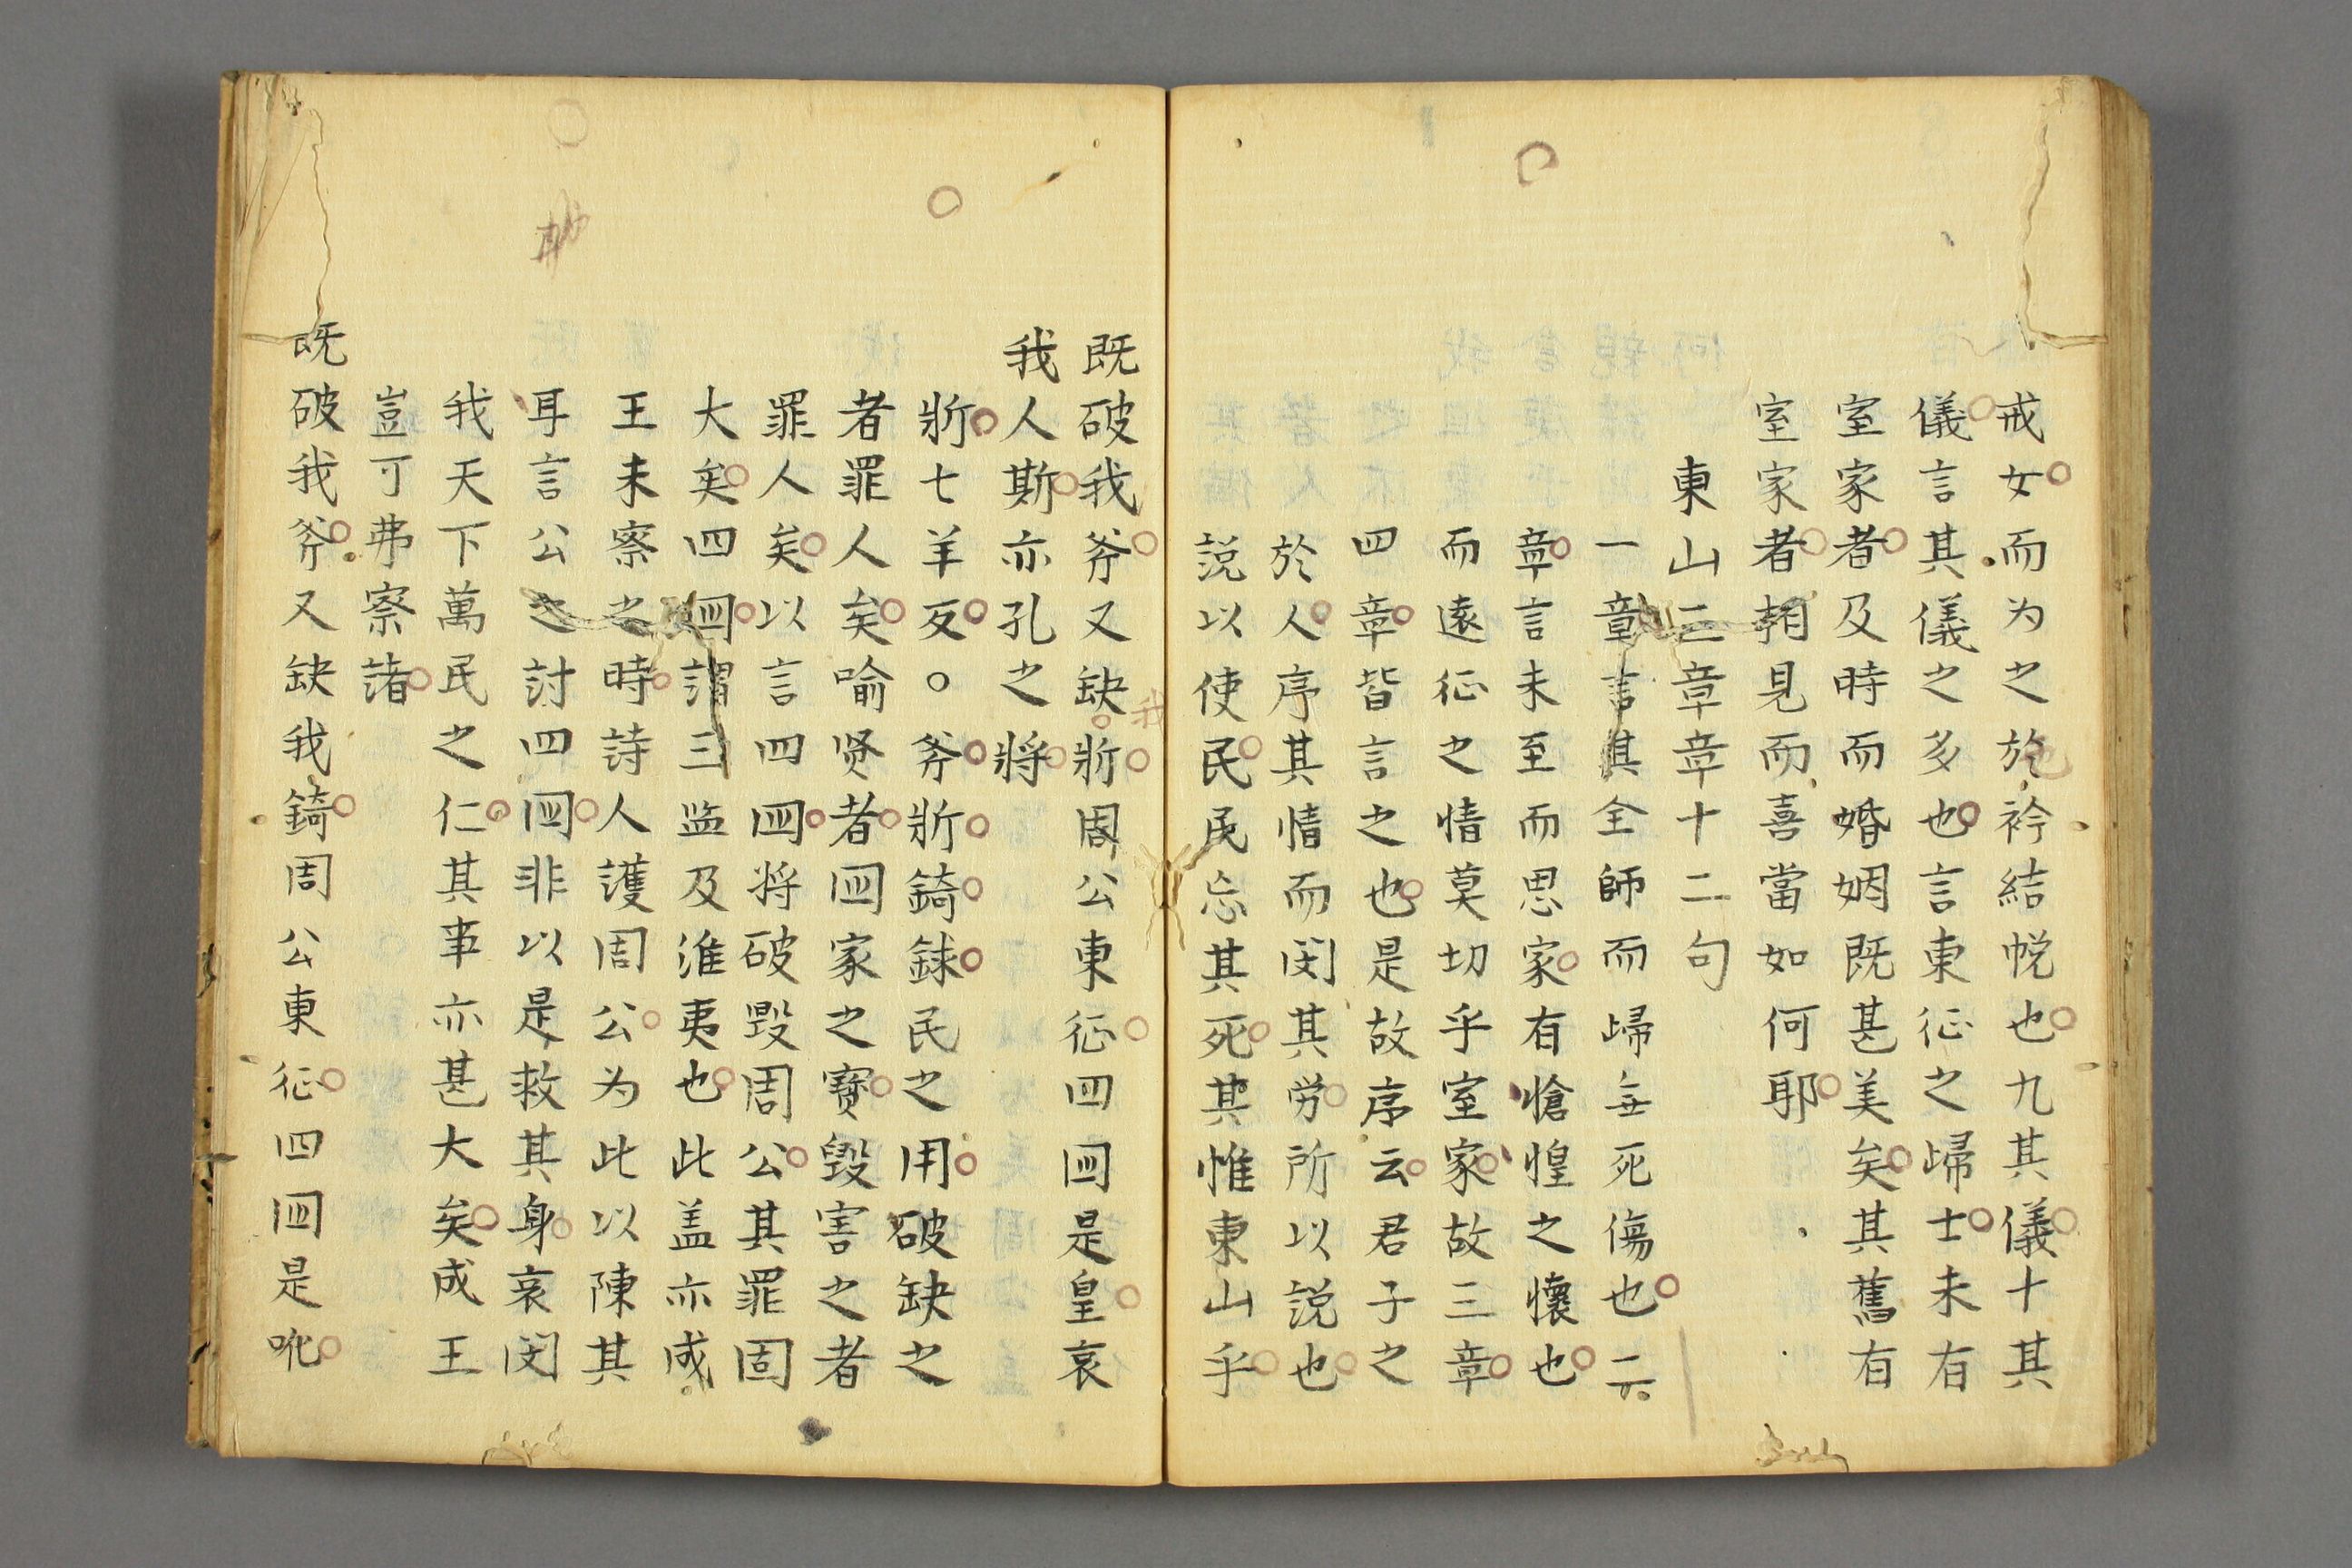 戒女而为之於衿結帨也九其儀十其
儀言其儀之多也言東征之歸士未有
室家者及時而婚姻既甚美矣其舊有
室家者相見而喜當如何耶
東山三章章十二句
一章言其全師而歸無死傷也二
章言未至而思家有愴惶之懷也
而遠征之情莫切乎室家故三章
四章皆言之也是故序云君子之
於人序其情而閔其労所以説也
説以使民民忘其死其惟東山乎
既破我斧又缺我斨周公東征四囯是皇哀
我人斯亦孔之將
斨七羊反○斧斨錡銶民之用破缺之
者罪人矣喻贤者囯家之寶毀害之者
罪人矣以言四囯将破毀周公其罪固
大矣四囯謂三监及淮夷也此盖亦成
王未察之時詩人護周公为此以陳其
耳言公之討四囯非以是救其身哀閔
我天下萬民之仁其事亦甚大矣成王
豈可弗察諸
既破我斧又缺我錡周公東征四囯是吪